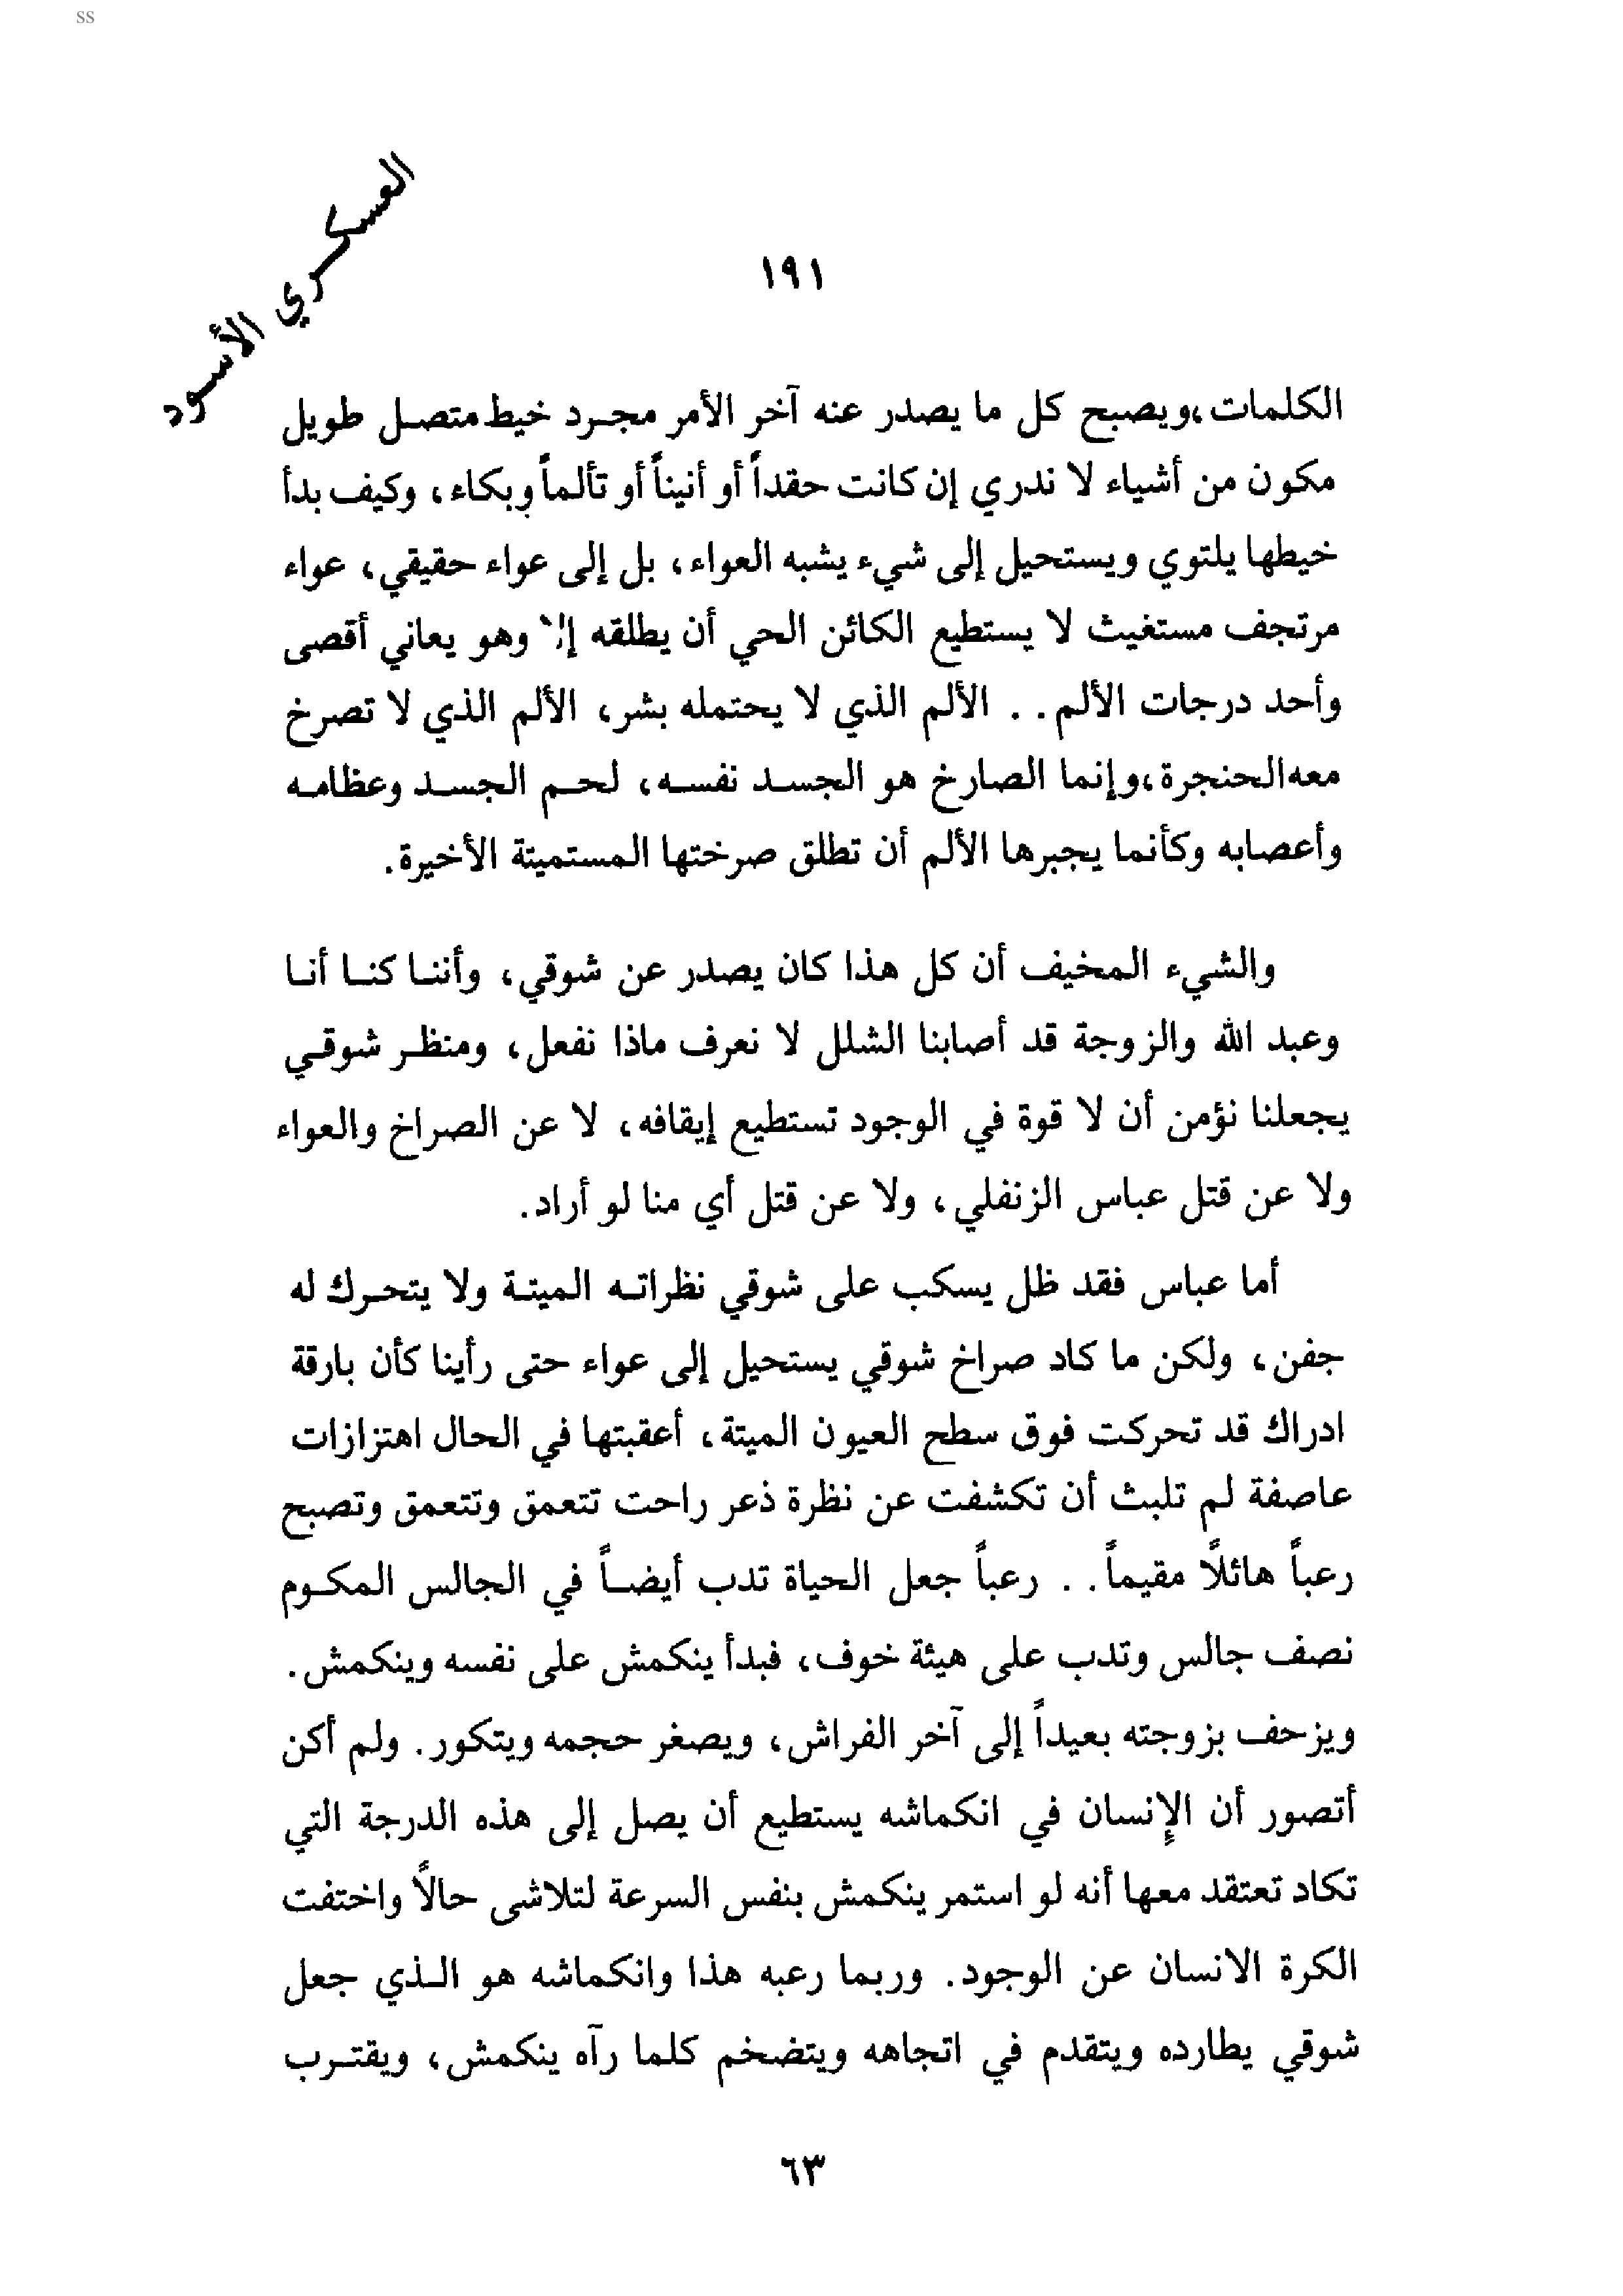 ss
العسكري الأسود
١٩١
الكلمات،ويصبح كل ما يصدر عنه آخر الأمر مجرد خيط متصل طويل
مكون من أشياء لا ندري إن كانت حقداً أو أنيناً أو تألماً وبكاء، وكيف بدأ
خيطها يلتوي ويستحيل إلى شيء يشبه العواء، بل إلى عواء حقيقي، عواء
مرتجف مستغيث لا يستطيع الكائن الحي أن يطلقه إلا وهو يعاني أقصى
وأحد درجات الألم.. الألم الذي لا يحتمله بشر، الألم الذي لا تصرخ
معه الحنجرة،وإنما الصارخ هو الجسد نفسه، لحم الجسد وعظامه
وأعصابه وكأنما يجبرها الألم أن تطلق صرختها المستميتة الأخيرة.
والشيء المخيف أن كل هذا كان يصدر عن شوقي، وأننا كنا أنا
وعبد الله والزوجة قد أصابنا الشلل لا نعرف ماذا نفعل، ومنظر شوقي
يجعلنا نؤمن أن لا قوة في الوجود تستطيع إيقافه، لا عن الصراخ والعواء
ولا عن قتل عباس الزنفلي، ولا عن قتل أي منا لو أراد.
أما عباس فقد ظل يسكب على شوقي نظراته الميتة ولا يتحرك له
جفن، ولكن ما كاد صراخ شوقي يستحيل إلى عواء حتى رأينا كأن بارقة
ادراك قد تحركت فوق سطح العيون الميتة، أعقبتها في الحال اهتزازات
عاصفة لم تلبث أن تكشفت عن نظرة ذعر راحت تتعمق وتتعمق وتصبح
رعباً هائلاً مقيماً.. رعباً جعل الحياة تدب أيضاً في الجالس المكوم
نصف جالس وتدب على هيئة خوف، فبدأ ينكمش على نفسه وينكمش.
ويزحف بزوجته بعيداً إلى آخر الفراش، ويصغر حجمه ويتكور. ولم أكن
أتصور أن الإنسان في انكماشه يستطيع أن يصل إلى هذه الدرجة التي
تكاد تعتقد معها أنه لو استمر ينكمش بنفس السرعة لتلاشى حالاً واختفت
الكرة الانسان عن الوجود. وربما رعبه هذا وانكماشه هو الذي جعل
شوقي يطارده ويتقدم في اتجاهه ويتضخم كلما رآه ينكمش، ويقترب
٦٣